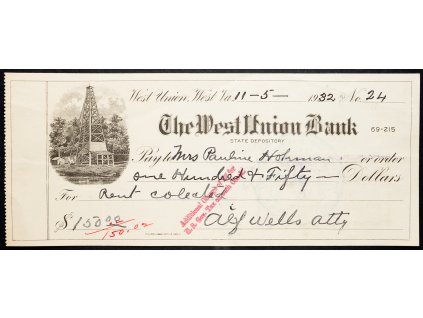 West Union, West Va. 11-5- 1932 No. 24
The West Union Bank 69-215
STATE DEPOSITORY
Pay to Mrs Pauline Hohman or order
one Hundred & Fifty Dollars
For Rent colected
Additional Charge for
U.S. Gov. Tax
$150.00
150.02
Wells atty